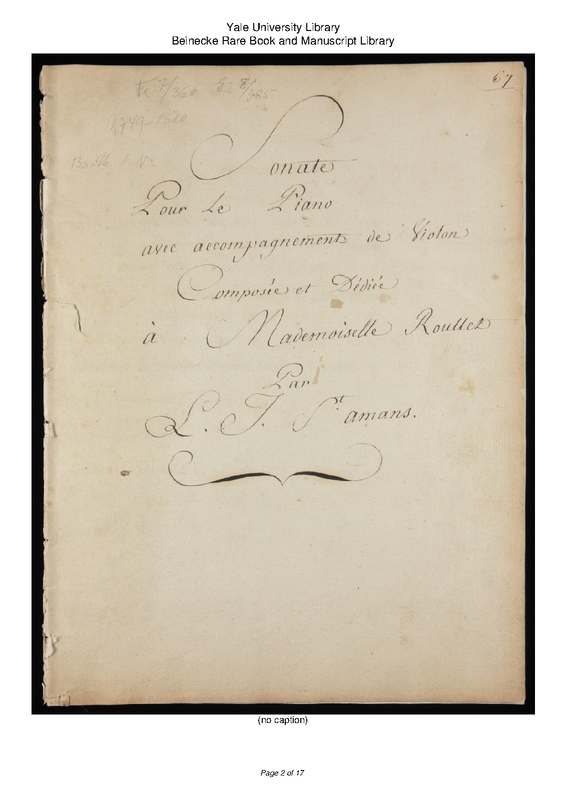 Yale University Library
Beinecke Rare Book and Manuscript Library
67
1749-1820
Sonate
Pour Le Piano
avec accompagnement de Violon
Composée et Dédiée
à Mademoiselle Roullet
Par
L. J. St amans.
(no caption)
Page 2 of 17